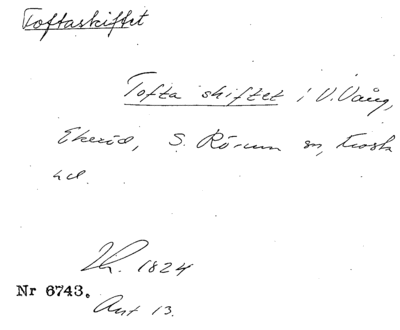 Toftaskiftet
Tofta skiftet i V. Vång,
Ekeröd, S. Rörum sn, Frosta
hd.
Lk. 1824
Nr 6743.
Avt 13.